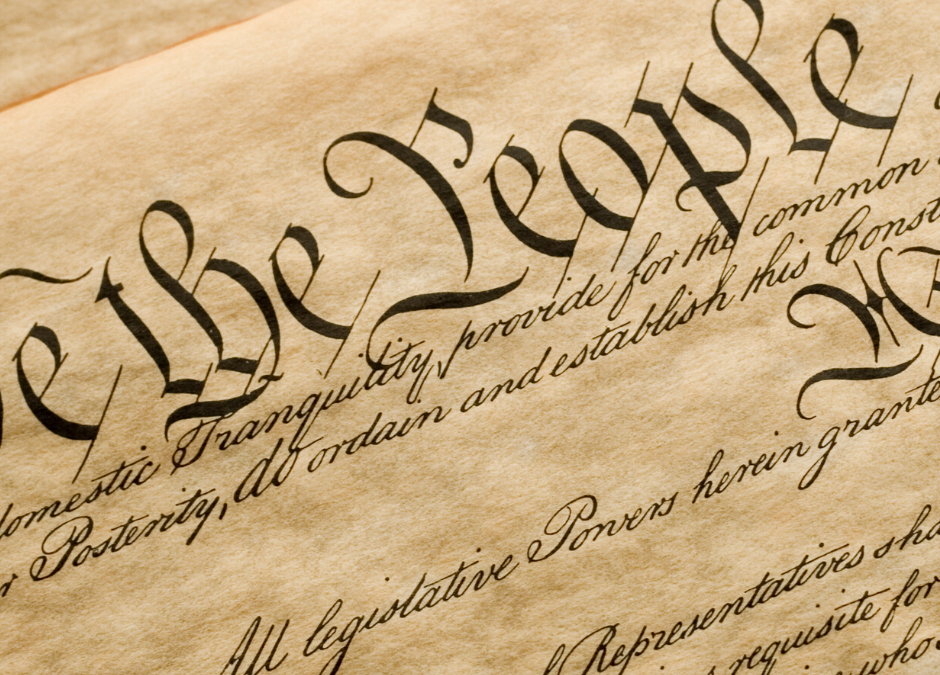 e the People
domestic Tranquility, provide for the common
r Posterity, do ordain and establish this Const
All legislative Powers herein grante
Representatives sha
requisite for
who